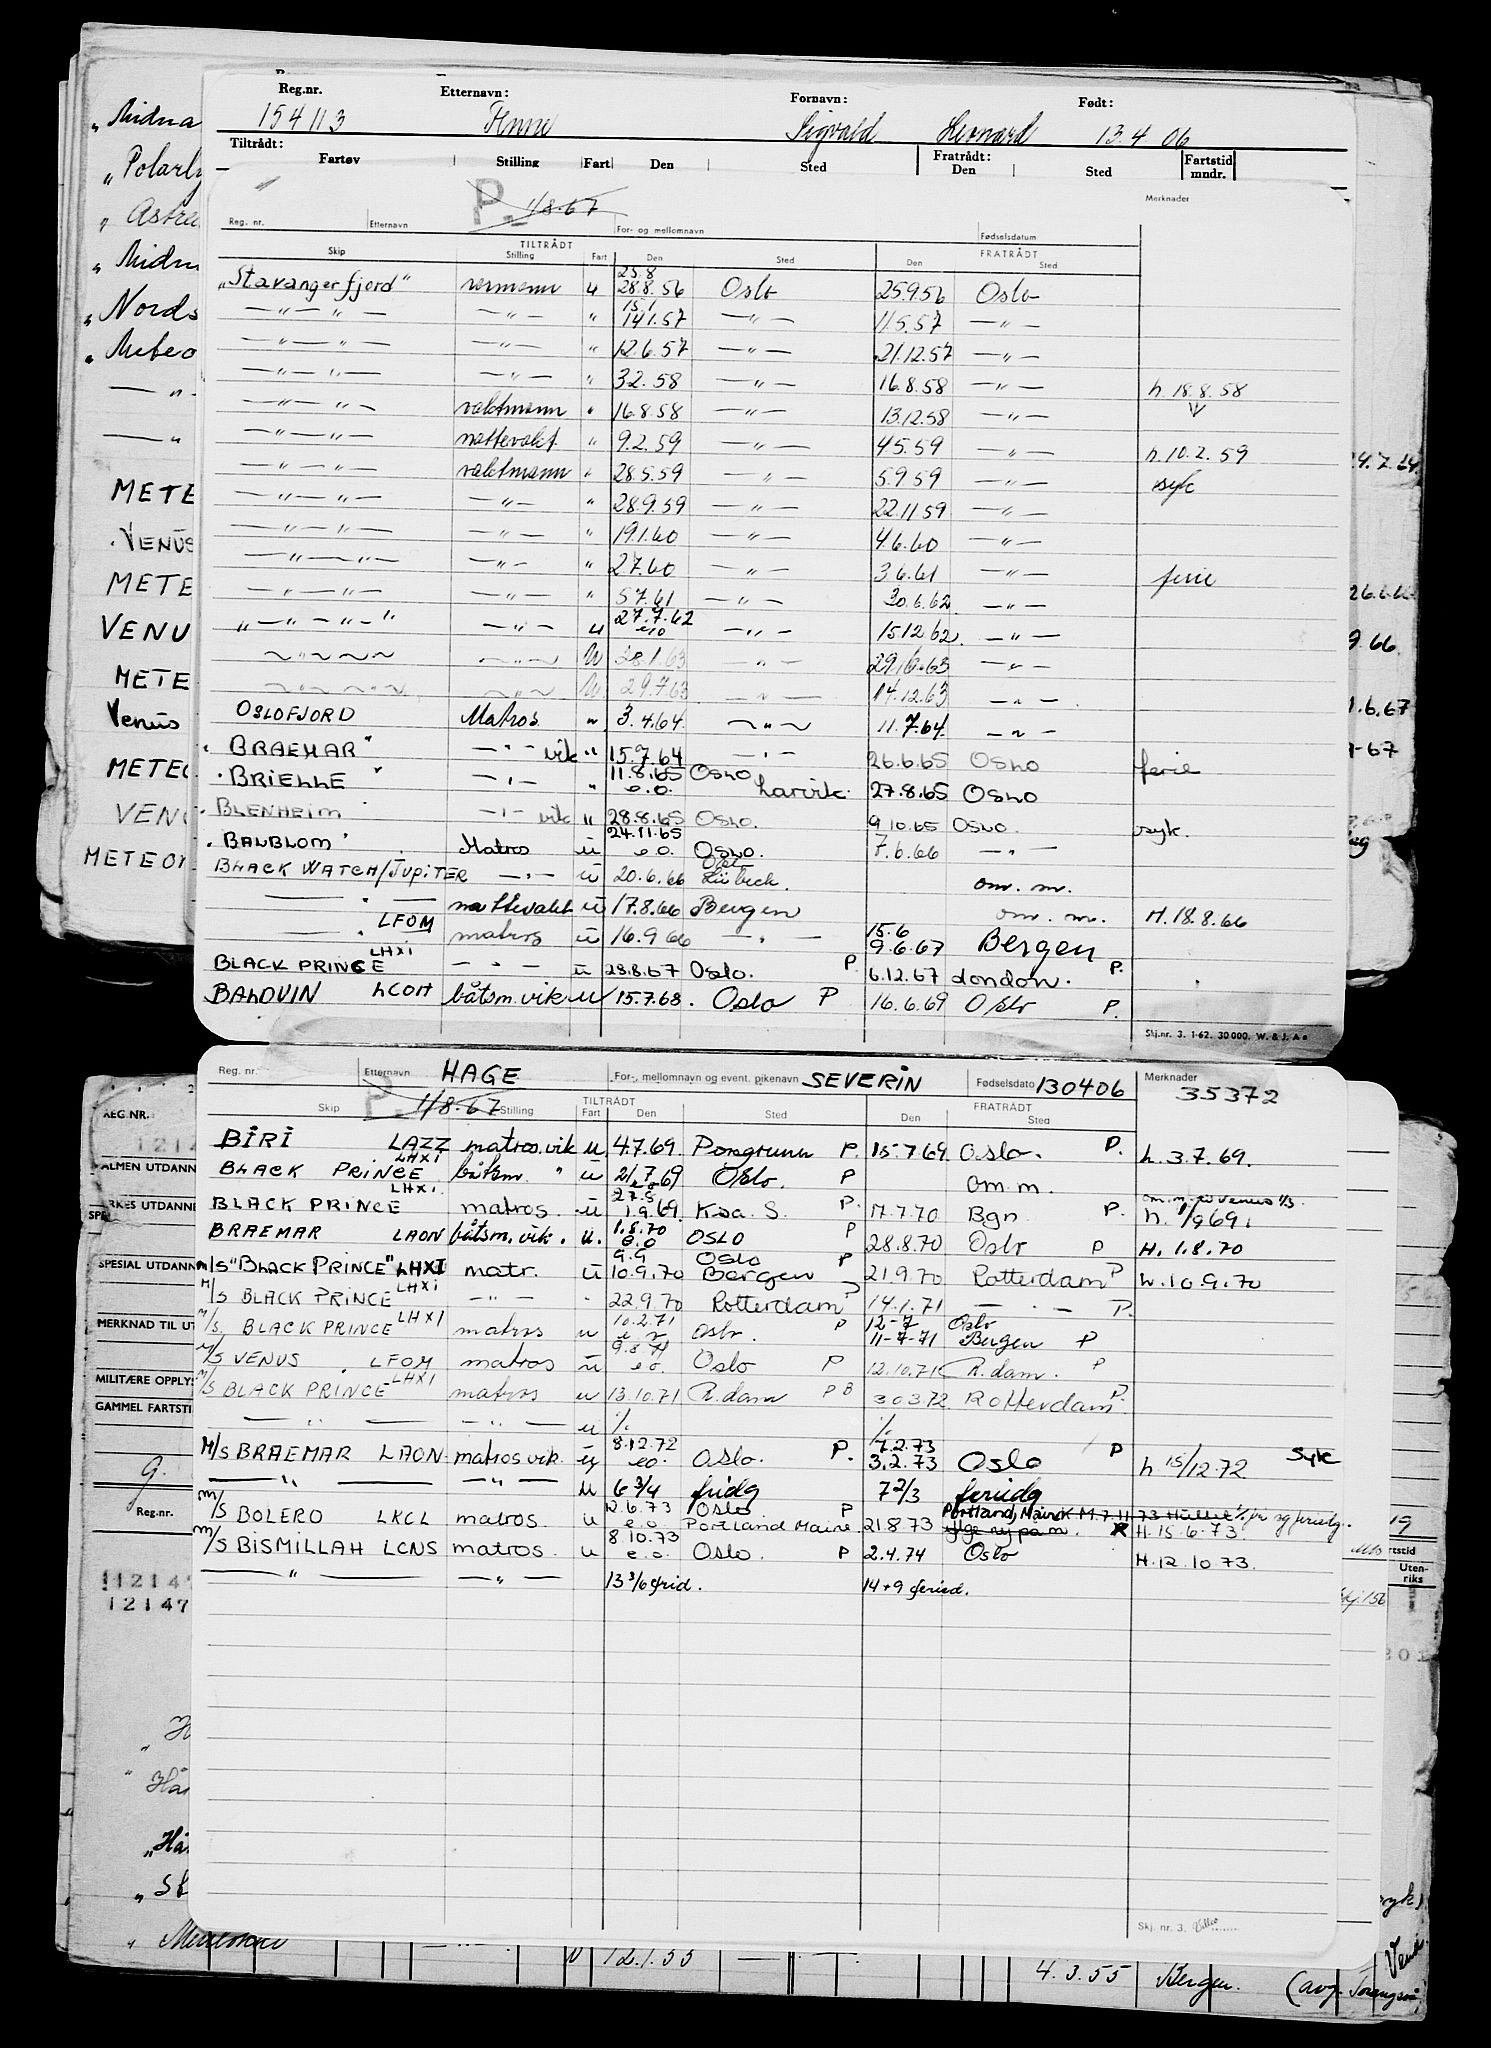 Reg.nr. Etternavn: Fornavn: Født:
154113 Sigvald Leonard 13.4 06
Tiltrådt: Fratrådt:
Fartøy Stilling Fart Den Sted Den Sted Fartstid mndr.
P. 1/8-67 Merknader
Reg. nr. Etternavn For- og mellomnavn Fødselsdatum
TILTRÅDT FRATRÅDT
Skip Stilling Fart Den Sted Den Sted
25.8
"Stavangerfjord" rormann u 28.8.56 Oslo 25.9.56 Oslo
15.1
— " — " — — " — " 14.1.57 — " — 11.5.57 — " —
— " — " — — " — " 12.6.57 — " — 21.12.57 — " —
— " — " — — " — " 3.2.58 — " — 16.8.58 — " — h. 18.8.58
— " — " — vaktmann " 16.8.58 — " — 13.12.58 — " —
— " — " — nattevakt " 9.2.59 — " — 4.5.59 — " — h. 10.2.59
— " — " — vaktmann " 28.5.59 — " — 5.9.59 — " — syk
— " — " — — " — " 28.9.59 — " — 22.11.59 — " —
— " — " — — " — " 19.1.60 — " — 4.6.60 — " —
— " — " — — " — " 2.7.60 — " — 3.6.61 — " — ferie
— " — " — — " — " 5.7.61 — " — 30.6.62 — " —
27.7.62
" — " — " — " — " — u e/o — " — 15.12.62 — " —
— " — " — — " — u 28.1.63 — " — 29.6.63 — " —
— " — " — — " — u 29.7.63 — " — 14.12.63 — " —
OSLOFJORD Matros " 3.4.64 — " — 11.7.64 — " —
"BRAEMAR" — " — vik " 15.9.64 — " — 26.6.65 OSLO ferie
"BRIELLE" — " — " 11.8.65 e.o. OSLO Larvik 27.8.65 OSLO
BLENHEIM — " — vik " 28.8.65 OSLO. 9.10.65 OSLO. syk.
24.11.65
"BALBLOM" Matros u e.o. OSLO. 7.6.66 — " —
BLACK WATCH/JUPITER — " — u 20.6.66 Oslo Lübeck. om. m.
— " — nattevakt u 17.8.66 Bergen om. m. H. 18.8.66
— " — LFOM matros u 16.9.66 — " — 15.6 9.6.67 Bergen
BLACK PRINCE LHXI — " — u 28.8.67 Oslo. P. 6.12.67 London. P.
BALDUIN LCOH båtsm. vik u 15.7.68. Oslo P 16.6.69 Oslo P.
Skj.nr. 3. 1-62. 30 000. W. & J. A s
Reg. nr. Etternavn HAGE For-, mellomnavn og event. pikenavn SEVERIN Fødselsdato 130406 Merknader 35372
P. 1/8-67
TILTRÅDT FRATRÅDT
Skip Stilling Fart Den Sted Den Sted
BIRI LAZZ matros. vik u 4.7.69. Porsgrunn P. 15.7.69 Oslo. P. h. 3.7.69.
BLACK PRINCE LHXI båtsm " u 21.7.69 e.o Oslo. P om m.
BLACK PRINCE LHXI matros. u 27.8 1.9.69. Ksa. S. P. 17.7.70 Bgn P. h. 1/9 69.
BRAEMAR LAON båtsm. vik. u. 1.8.70 e.o OSLO P 28.8.70 Oslo P H. 1.8.70
M/S "BLACK PRINCE" LHXI matr. u 9.9 10.9.70 Oslo Bergen P 21.9.70 Rotterdam P h. 10.9.70
M/S BLACK PRINCE LHXI — " — " 22.9.70 Rotterdam P 14.1.71 — " — P.
M/S. BLACK PRINCE LHXI matros u 10.2.71 Oslo. P 12-7 11-7-71 Oslo Bergen P
M/S VENUS LFOM matros u e.o. Oslo P 12.10.71 R.dam. P
M/S BLACK PRINCE LHXI matros u 13.10.71 R.dam P B 30.3.72 Rotterdam P.
— " — — " — u %. %.
M/S BRAEMAR LAON matros vik. u 8.12.72 e.o. Oslo. P. 7.2.73 3.2.73 Oslo P h 15/12.72 Syk
— " — — " — u 6 3/4 fridg 7 2/3 feriedg
M/S BOLERO LKCL matros. u 12.6.73 e.o. Oslo Portland Maine P 21.8.73 Portland, Maine H. 15.6.73.
M/S BISMILLAH LCNS matros. u 8.10.73 e.o. Oslo. P 2.4.74 Oslo H. 12.10.73.
— " — — " — 13 3/6 frid. 14+9 feried.
Skj. nr. 3.
"Polarly
"Nords
"Meteo
METE
VENUS
METE
VENU
METE
Venus
METEO
VENU
METEOR
24.7.64
9.66.
1.6.67
REG.NR.
1214
ALMEN UTDANN
SPESIAL UTDANN
MERKNAD TIL UT
MILITÆRE OPPLYS
GAMMEL FARTSTI
9.
Reg.nr.
112147
12147
19
rtstid
Uten-
riks
u 12.1.55 4.3.55 Bergen.